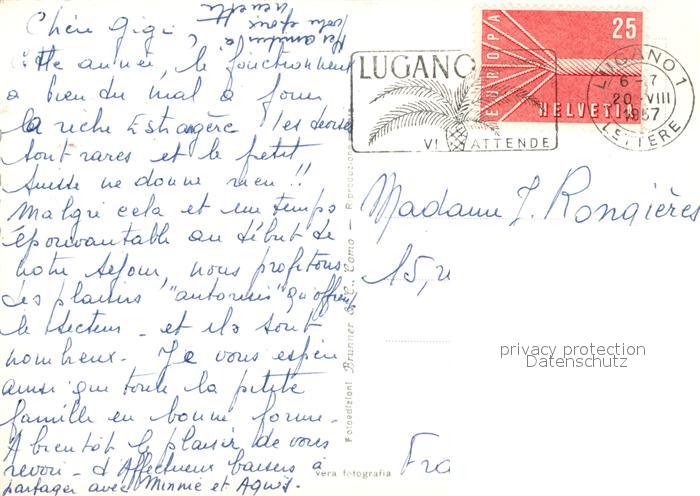 Chère Gigi,
Cette année, le fonctionnaire
a bien du mal à jouer
la riche Estrangère ! les devises
sont rares et le petit
suisse ne donne rien !!
Malgré cela et un temps
épouvantable au début de
notre séjour, nous profitons
des plaisirs "autorisés" qu'offrent
le secteur - et ils sont
nombreux. Je vous espère
ainsi que toute la petite
famille en bonne forme.
A bientôt le plaisir de vous
revoir - d'Affectueux baisers à
partager avec Minnie et Agnès.
LUGANO
VI ATTENDE
EUROPA
25
HELVETIA
LUGANO 1
6-7
20.VIII
1957
LETTERE
Madame J. Rongières
15, r
Fra
Fotoedizioni Brunner & C., Como - Riproduzione
vera fotografia
privacy protection
Datenschutz